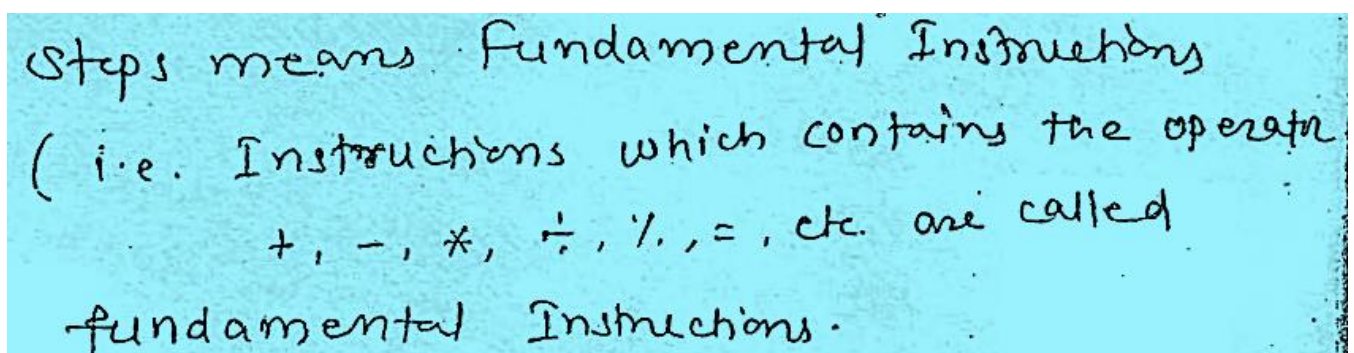 Steps means Fundamental Instructions
( i.e. Instructions which contains the operator
+, -, *, ÷, %, =, etc. are called
fundamental Instructions.